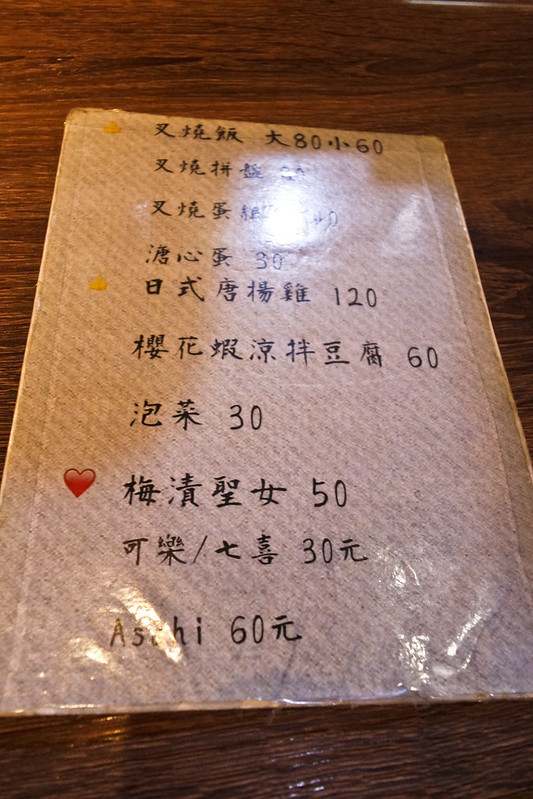 叉燒飯 大80小60
叉燒拼盤
叉燒蛋
溏心蛋 30
日式唐揚雞 120
櫻花蝦涼拌豆腐 60
泡菜 30
梅漬聖女 50
可樂/七喜 30元
Asahi 60元